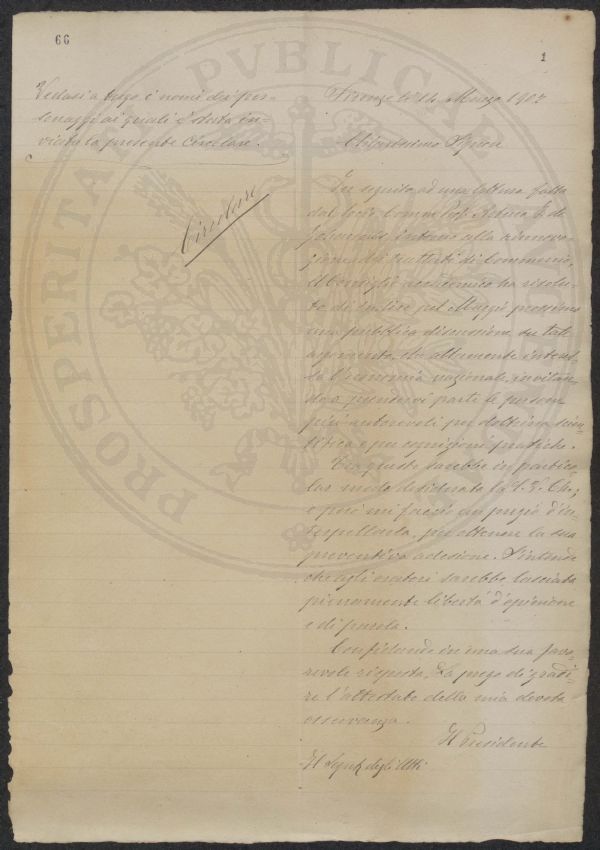 66
1
Vedasi a tergo i nomi dei per-
sonaggi ai quali è stata in-
viata la presente Circolare.
Circolare
Firenze li 14 Marzo 1902
Chiarissimo Signore
In seguito ad una lettura fatta
dal Socio Comm. Prof. Arturo J. de
Johannis intorno alla rinnova-
zione dei trattati di Commercio,
il Consiglio accademico ha risolu-
to di indire pel Maggio prossimo
una pubblica discussione su tale
argomento, che altamente interes-
sa l'economia nazionale, invitan-
do a prendervi parte le persone
più autorevoli per dottrina scien-
tifica e per cognizioni pratiche.
Tra queste sarebbe in partico-
lar modo desiderata la S. V. Ch.;
e però mi faccio un pregio d'in-
terpellarla, per ottenere la sua
preventiva adesione. S'intende
che agli oratori sarebbe lasciata
pienamente libertà d'opinione
e di parola.
Confidando in una sua favo-
revole risposta, La prego di gradi-
re l'attestato della mia devota
osservanza.
Il Presidente
Il Segret. degli Atti
PROSPERITATI PUBLICAE